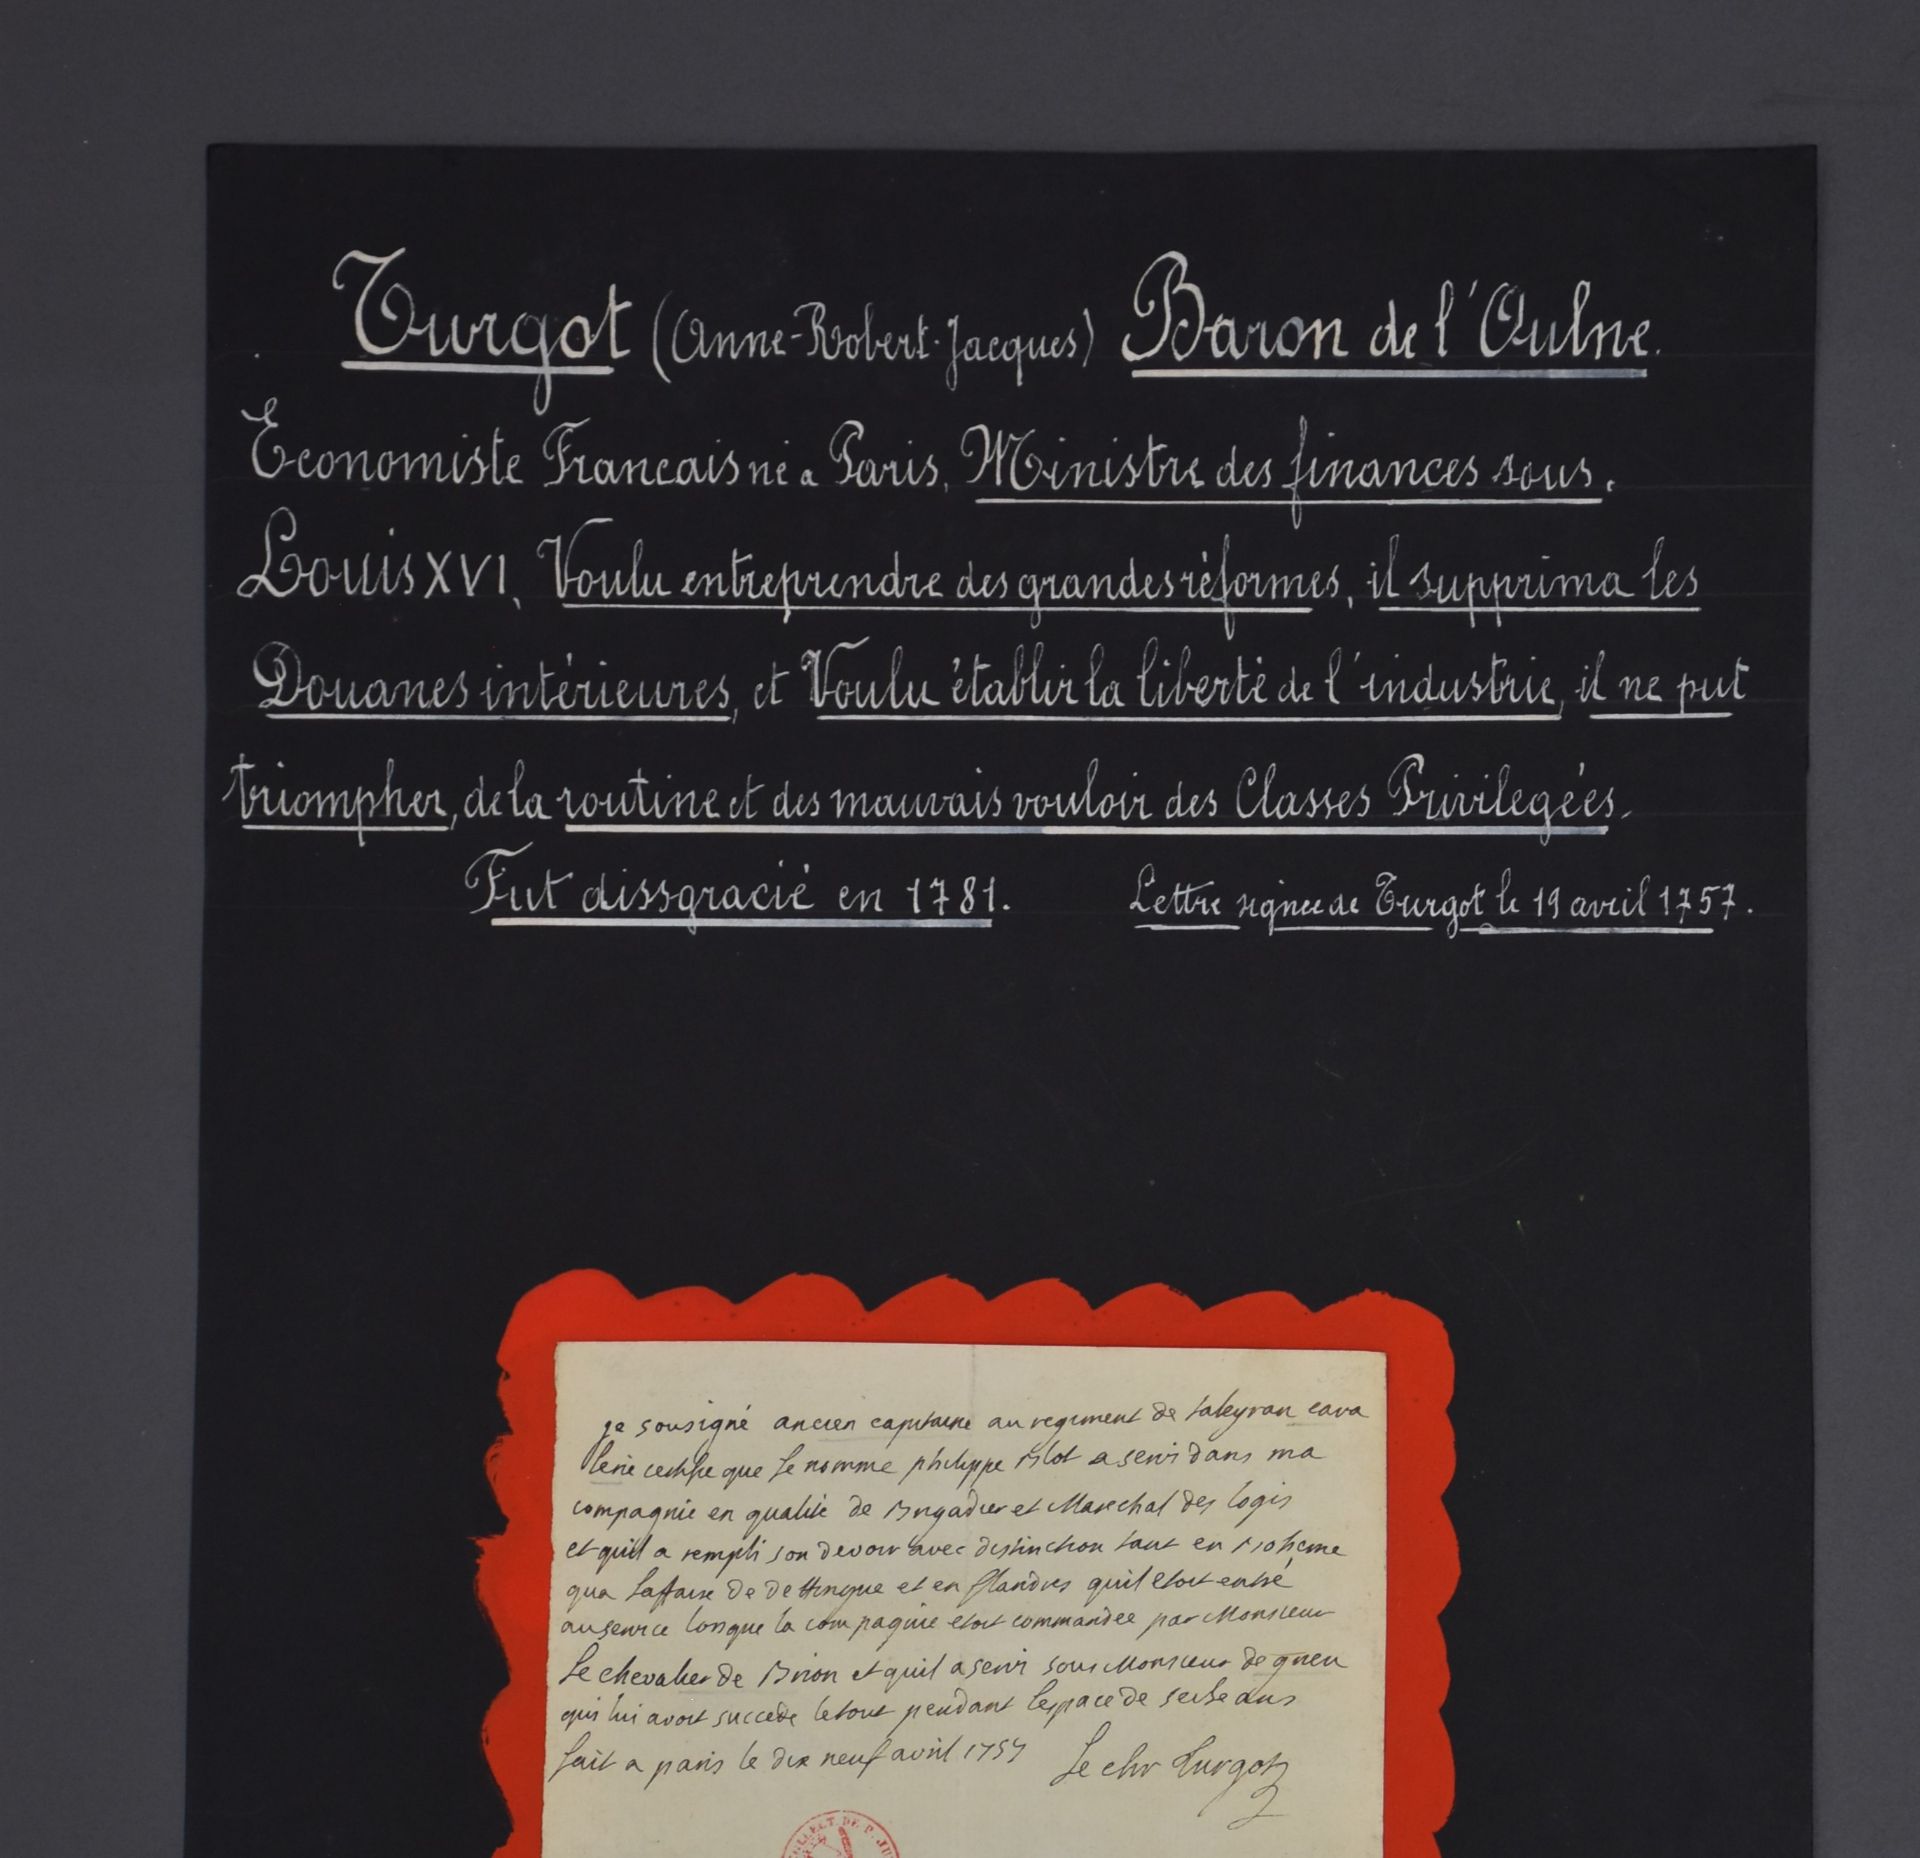 Turgot (Anne-Robert-Jacques) Baron de l'Aulne.
Economiste Francais né a Paris, Ministre des finances sous.
Louis XVI, Voulu entreprendre des grandes réformes, il supprima les
Douanes intérieures, et Voulu établir la liberté de l'industrie, il ne put
triompher, de la routine et des mauvais vouloir des Classes Privilegées.
Fut dissgracié en 1781. Lettre signée de Turgot le 19 avril 1757.
je sousigné ancien capitaine au regiment de taleyran cava
lerie certifie que le nomme philippe Blot a servi dans ma
compagnie en qualité de Brigadier et Marechal des logis
et quil a rempli son devoir avec distinction tant en Boheme
qua laffaire de dettingue et en flandres quil etoit entré
au service lorsque la compagnie etoit commandée par Monsieur
Le chevalier de Brion et quil a servi sous Monsieur de
qui lui avoit succede le tout pendant lespace de seise ans
fait a paris le dix neuf avril 1757 Le chr Turgot
COLLECT. DE P. JU